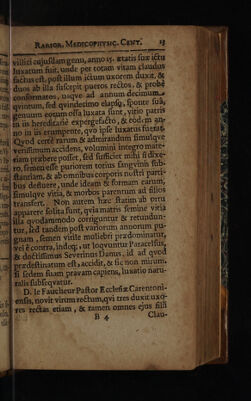 RARIOR. MEDICOPHYSIC. CENT. 23
villici cujusdam genu, anno 15. ætatis suæ ictu
luxatum fuit, unde per totam vitam claudus
factus est. post illum ictum uxorem duxit, &
duos ab illa suscepit pueros rectos, & probè
conformatos, usque ad annum decimum
quintum, sed quindecimo elapso, sponte suâ,
genuum eorum ossa luxata sunt, vitio patris
in iis hereditariè expergefacto, & eodem an-
no in iis erumpente, quo ipse luxatus fuerat.
Quod certè rarum & admirandum simulque
verissimum accidens, volumini integro mate-
riam præbere posset, sed sufficiet mihi si dixe-
ro, semen esse puriorem totius sanguinis sub-
stantiam, & ab omnibus corporis nostri parti-
bus defluere, unde ideam & formam earum,
simulque vitia, & morbos parentum ad filios
transfert. Non autem hæc statim ab ortu
apparere solita sunt, quia matris semine vitia
illa quodammodo corriguntur & retundun-
tur, sed tandem post variorum annorum pu-
gnam, semen virile muliebri prædominatur,
vel è contra, indeq; ut loquuntur Paracelsus,
& doctissimus Severinus Danus, id ad quod
prædestinatum est, accidit, & sic non mirum,
si sedem suam pravam capiens, luxatio natu-
ralis subsequatur.
D. le Faucheur Pastor Ecclesiæ Carentoni-
ensis, novit virum rectum, qui tres duxit uxo-
res rectas etiam, & tamen omnes ejus filii
B 4 Clau-